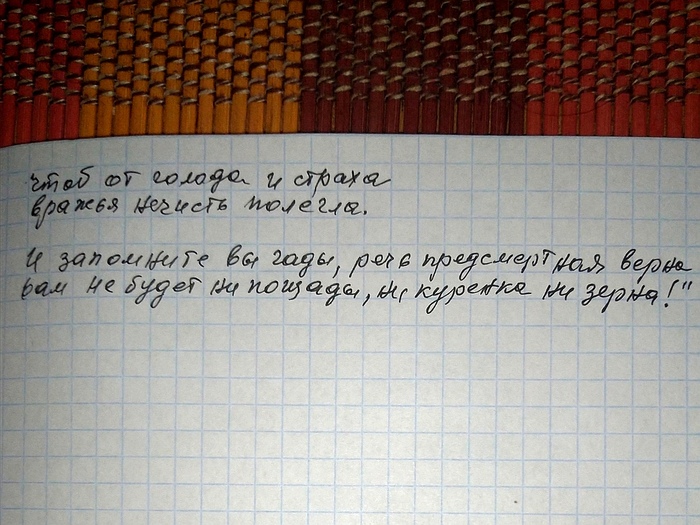 чтоб от голода и страха
вражья нечисть полегла.
И запомните вы гады, речь предсмертная верна
вам не будет ни пощады, ни куренка ни зерна!"